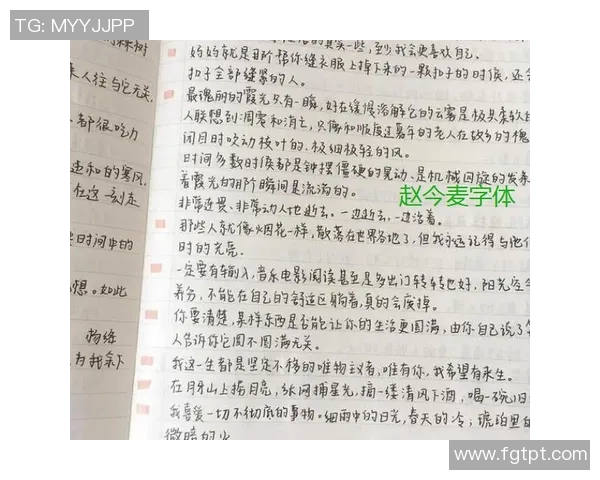 TG: MYYJJPP
的棵树
来人往与它无关,
都很吃力
造和的寒风,
在这一刻走
时间中的
想。如此
为我余下
的其实一些,至少我会更喜欢自己.
妈妈就是那个帮你缝衣服上掉下来的一颗扣子的时候,还会
扣子全部缝紧的人。
最瑰丽的霞光只有一瞬,好在缓慢溶解它的云雾是极其柔软的
人联想到凋零和消亡,只像和顺度过暮年的老人在故乡的槐
闭目时吹动枝叶的、极细极轻的风。
时间多数时候都是钟摆僵硬的晃动、是机械回旋的发条
着霞光的那个瞬间是流淌的。
赵今麦字体
非常迅畏、非常动人地逝去。一边逝去,一边活着。
那些人就像火烟花一样,散落在世界各地了,但我永远记得与他们
时的光亮.
一定要有输入,音乐电影阅读甚至是多出门转转也好,阳光空气
养分,不能在自己的舒适区躺着,真的会废掉。
你要清楚,某样东西是否能让你的生活更圆满,由你自己说了算
人告诉你它圆不圆满无关。
我这一生都是坚定不移的唯物主义者,唯有你,我希望有来生。
在月牙山上捞月亮,纵网捕星光,摘一缕清风下酒,喝一碗旧
我喜爱一切不彻底的事物。细雨中的日光,春天的冷;琥珀里的
微暗的火
www.fgtpt.com